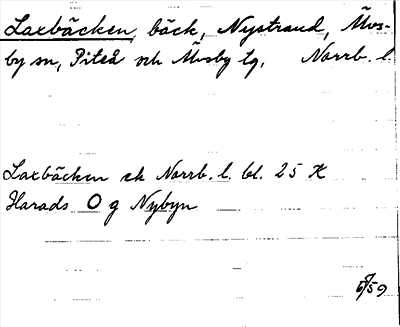 Laxbäcken, bäck, Nystrand, Älvs-
by sn, Piteå och Älvsby tg, Norrb. l.
Laxbäcken ek Norrb. l. bl. 25 K
Harads O g Nybyn
6/8 59